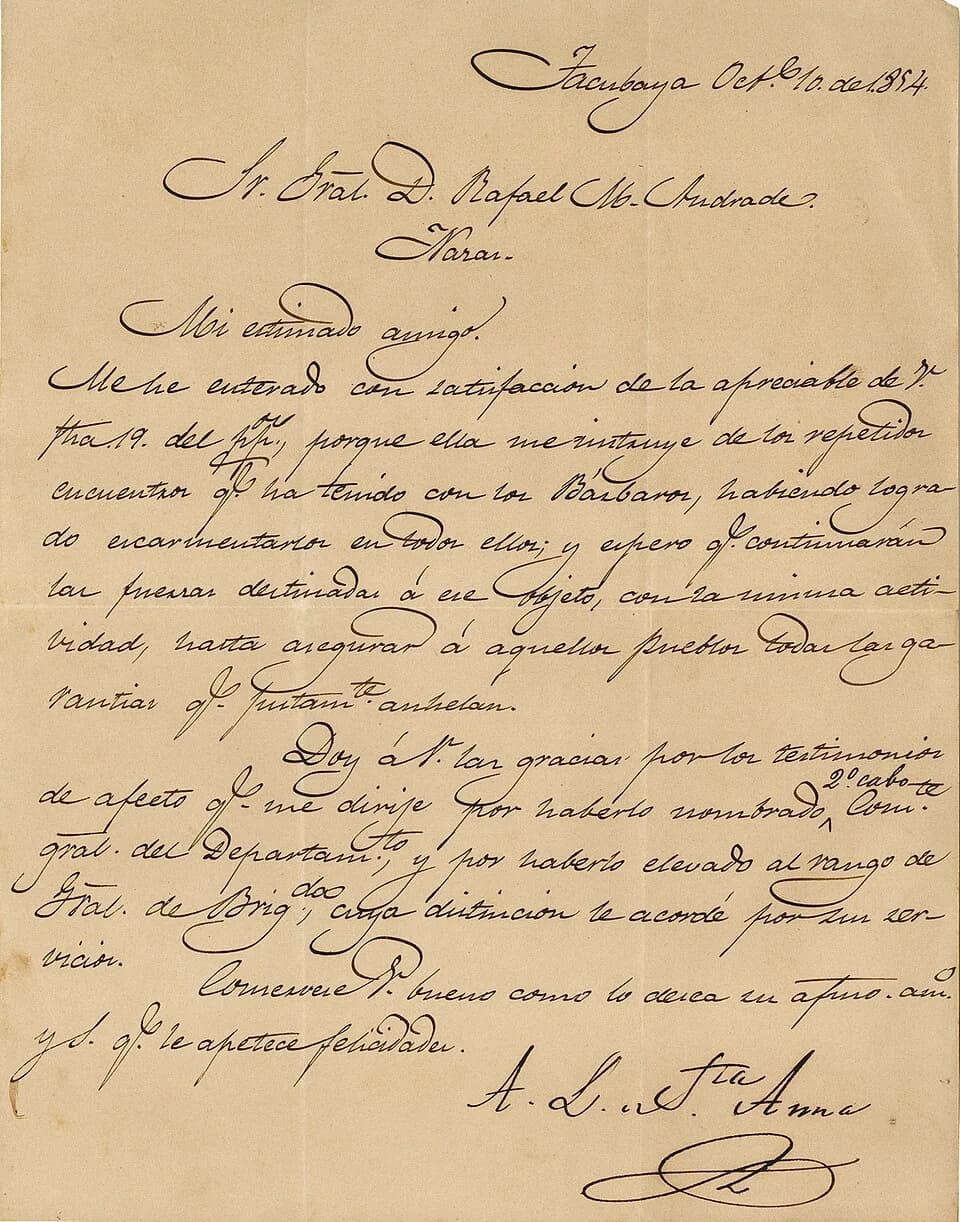 Tacubaya Octe. 10. de 1854.
Sr. Gral. D. Rafael M. Andrade.
Nazas.
Mi estimado amigo.
Me he enterado con satisfaccion de la apreciable de V.
fha 19. del ppo., porque ella me instruye de los repetidos
encuentros q. ha tenido con los Bárbaros, habiendo logra-
do escarmentarlos en todos ellos; y espero q. continuarán
las fuerzas destinadas á ese objeto, con la misma acti-
vidad, hasta asegurar á aquellos Pueblos todas las ga-
rantias q. justamte. anhelan.
Doy á V. las gracias por los testimonios
de afecto q. me dirije por haberlo nombrado 2º cabo Comte.
gral. del Departamto., y por haberlo elevado al rango de
Gral. de Brigda., cuya distincion le acordé por sus ser-
vicios.
Conservese V. bueno como lo desea su afmo. amo.
y S. q. le apetece felicidades.
A. L. de Sta. Anna